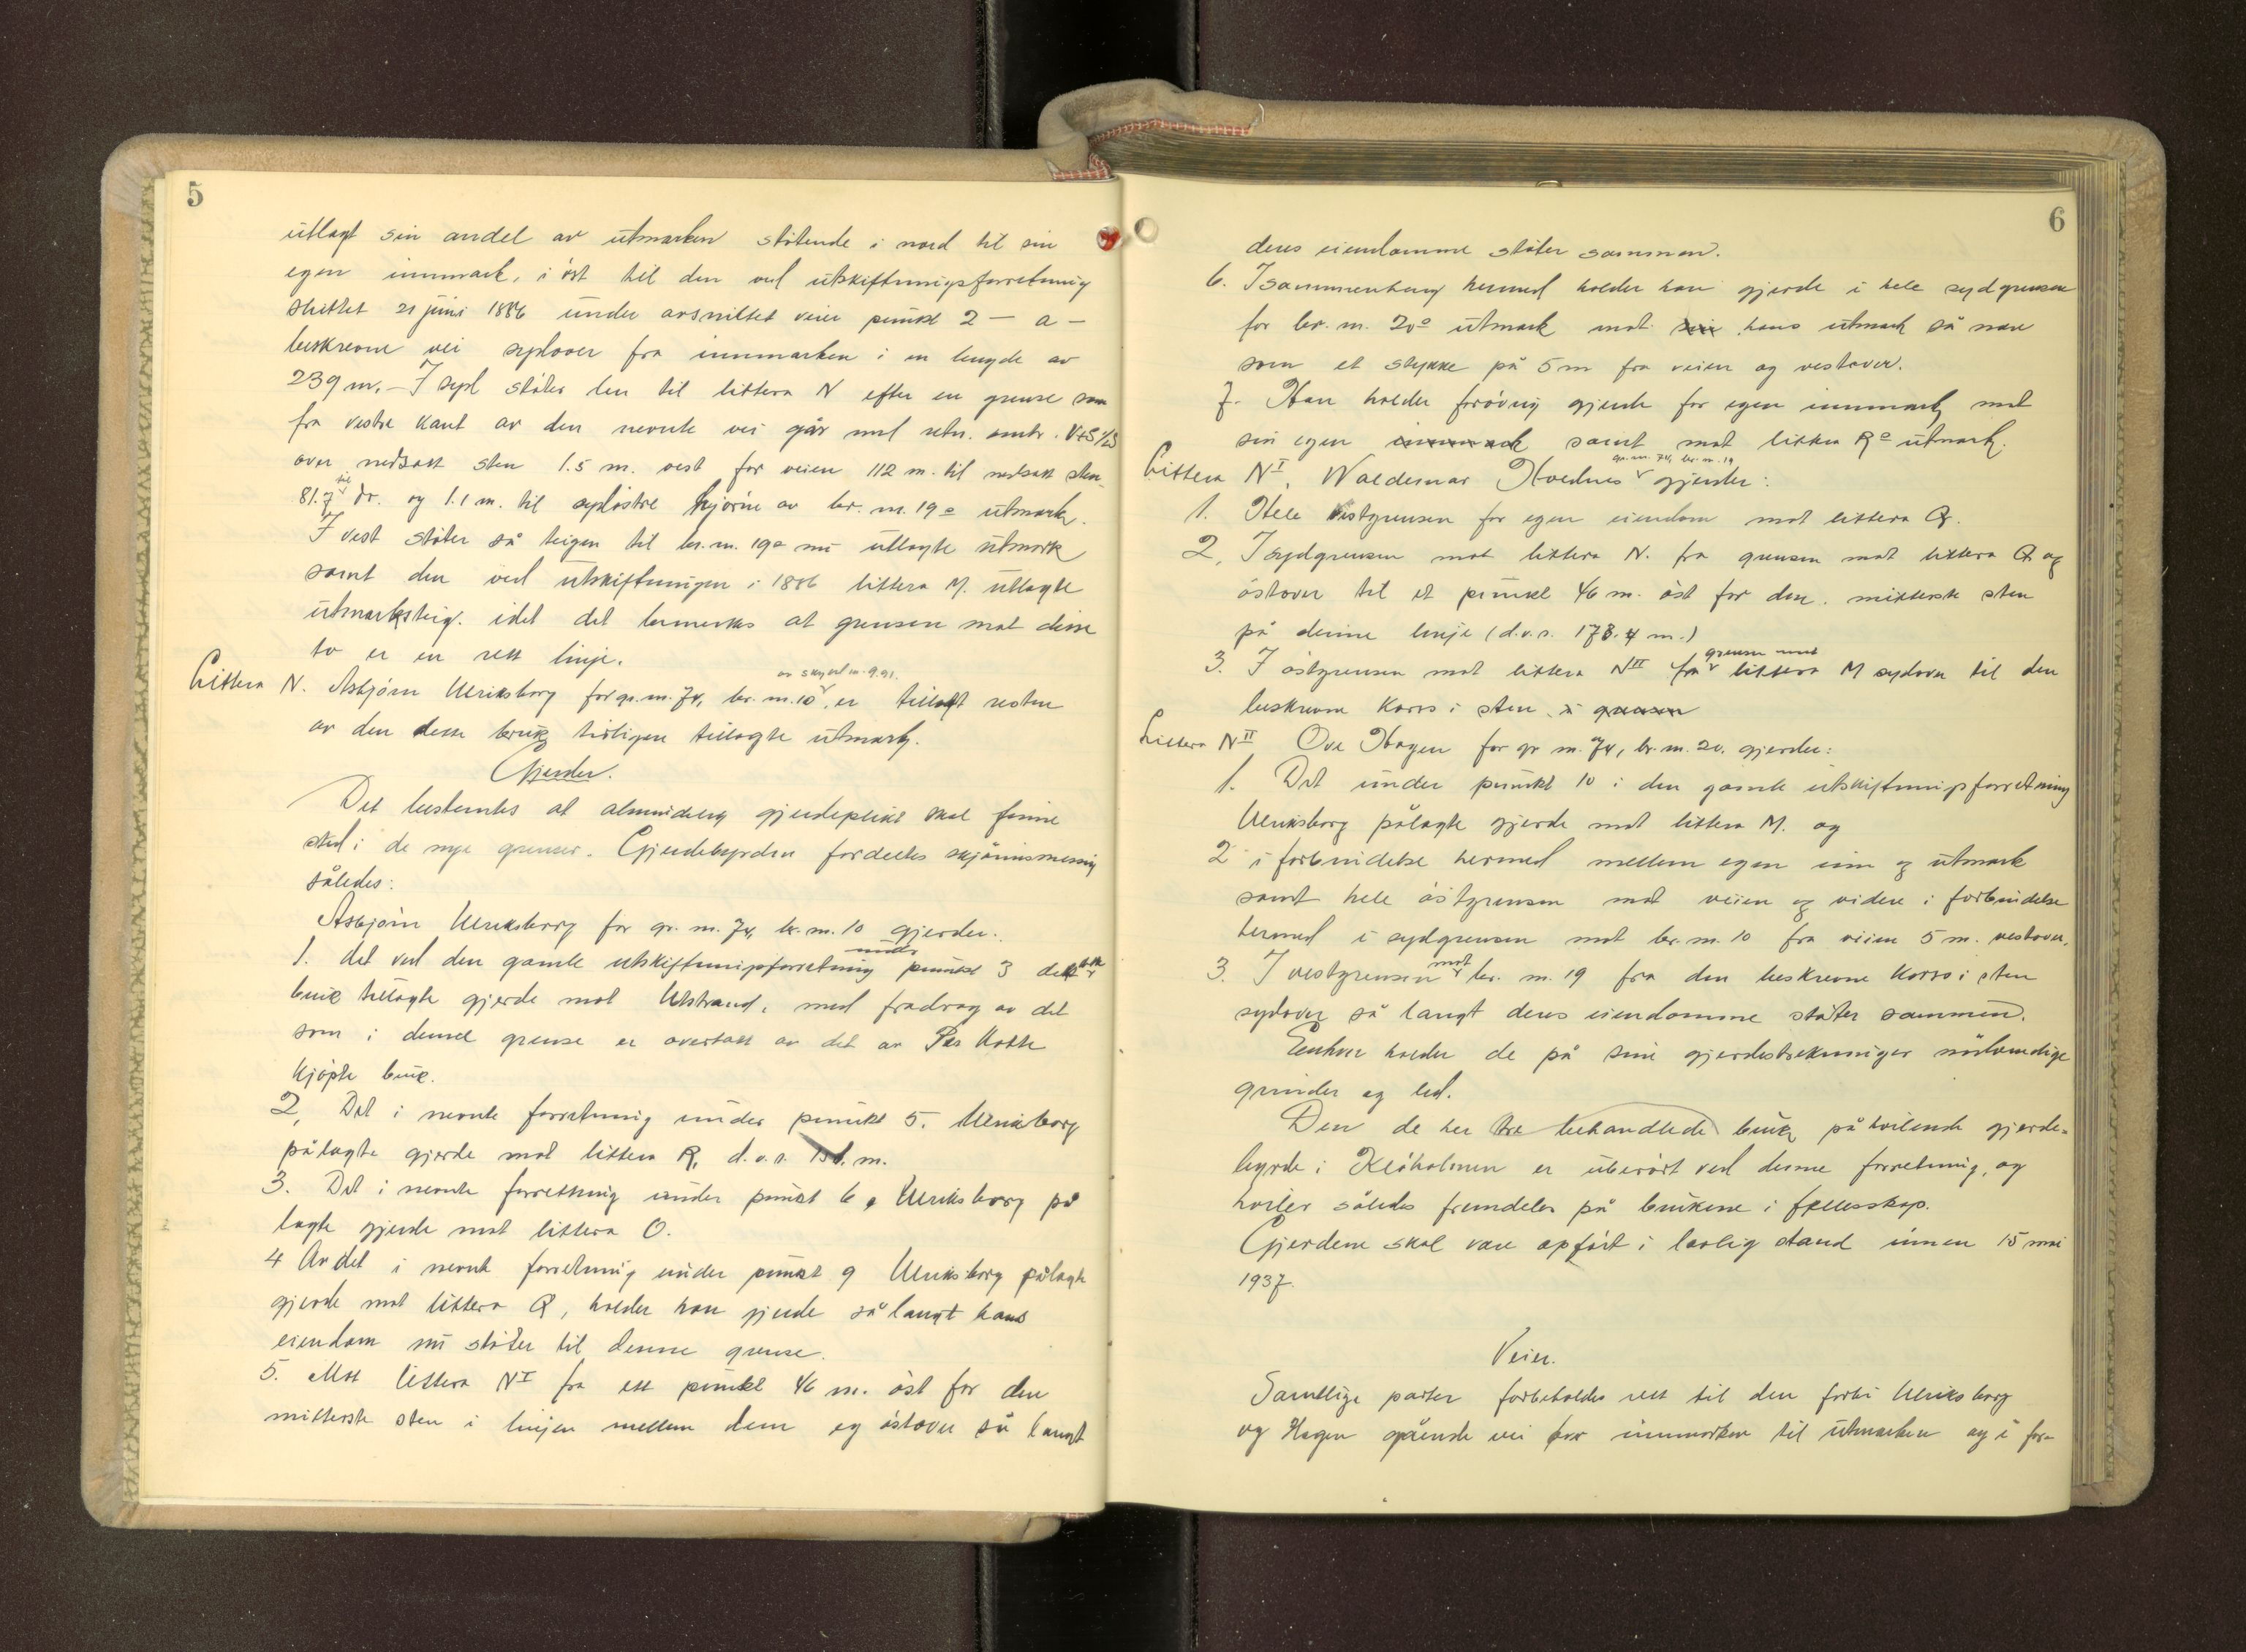 5
utlagt sin andel av utmarken støtende i nord til sin
egen innmark, i øst til den ved utskiftningsforretning
sluttet 21 juni 1886 under avsnittet veier punkt 2 — a —
beskrevne vei sydover fra innmarken i en lengde av
239 m. — I syd støter den til littera N efter en grense som
fra vestre kant av den nevnte vei går med retn. omtr.
over nedsatt sten 1.5 m. vest for veien 112 m. til nedsatt sten
81.7 til do. og 1.1 m. til sydøstre hjørne av br. n. 19s utmark.
I vest støter så teigen til br. n. 19s nu utlagte utmark
samt den ved utskiftningen i 1886 littera M. utlagte
utmarksteig. idet det bemerkes at grensen mot disse
to er en rett linje.
av skyld m. 9.91.
Littera N. Asbjørn Ulriksborg for gr. n. 74, br. n. 10 er tillagt resten
av den dette bruk tidligere tillagte utmark.
Gjerder.
Det bestemtes at almindelig gjerdeplikt skal finne
sted i de nye grenser. Gjerdebyrden fordeltes skjønnsmessig
således:
Asbjørn Ulriksborg for gr. n. 74, br. n. 10 gjerder.
under
1. det ved den gamle utskiftningsforretning punkt 3 dette
bruk tillagte gjerde mot Utstrand, med fradrag av det
som i denne grense er overtatt av det av Per
kjøpte bruk.
2, Det i nevnte forretning under punkt 5. Ulriksborg
pålagte gjerde mot littera R, d.v.s. m.
3. Det i nevnte forretning under punkt 6, Ulriksborg på
lagte gjerde mot littera O.
4 Av det i nevnte forretning under punkt 9 Ulriksborg pålagte
gjerde mot littera Q, holder han gjerde så langt hans
eiendom nu støter til denne grense.
5. Mot littera N I fra ett punkt 46 m. øst for den
mitterste sten i linjen mellem dem og østover så langt
6
deres eiendomme støter sammen.
6. I sammenheng hermed holder han gjerde i hele sydgrensen
for br. n. 20s utmark mot sin hans utmark så nær
som et stykke på 5 m fra veien og vestover.
7. Han holder forøvrig gjerde for egen innmark mot
sin egen innmark samt mot littera Rs utmark.
gr. n. 74, br. n. 19
Littera N I, Waldemar Hovdnes gjerder:
1. Hele vestgrensen for egen eiendom mot littera Q.
2, I sydgrensen mot littera N. fra grensen mot littera Q og
østover til et punkt 46 m. øst for den mitterste sten
på denne linje (d.v.s. 178.4 m.)
grensen mot
3. I østgrensen mot littera N II fra littera M sydover til den
beskrevne kors i sten i grensen
Littera N II Ove Hagen for gr. n. 74, br. n. 20. gjerder:
1. Det under punkt 10 i den gamle utskiftningsforretning
Ulriksborg pålagte gjerde mot littera M. og
2 i forbindelse hermed mellem egen inn og utmark
samt hele østgrensen mot veien og videre i forbindelse
hermed i sydgrensen mot br. n. 10 fra veien 5 m. vestover.
3. I vestgrensen mot br. n. 19 fra den beskrevne kors i sten
sydover så langt deres eiendomme støter sammen.
Enhver holder de på sine gjerdestrekninger nødvendige
grinder og led.
Den de her tre behandlede bruk påhvilende gjerde-
byrde i Kloholmen er uberørt ved denne forretning, og
hviler således fremdeles på brukene i fellesskap.
Gjerdene skal være opført i lovlig stand innen 15 mai
1937.
Veier.
Samtlige parter forbeholdes rett til den forbi Ulriksborg
og Hagen gående vei fra innmarken til utmarken og i for-